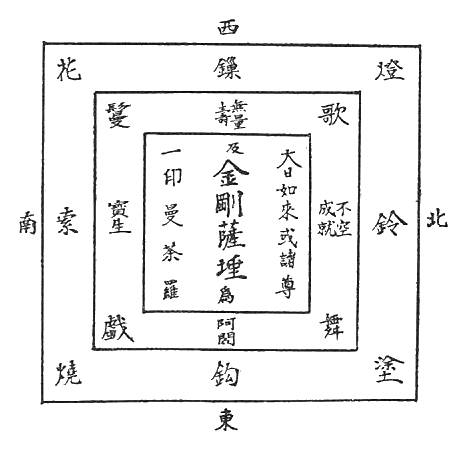 西
花 鏁 燈
鬘 無量壽 歌
大日如來或諸尊
及金剛薩埵為
一印曼荼羅
南 索 寶生 不空成就 鈴 北
戲 阿閦 舞
燒 鈎 塗
東